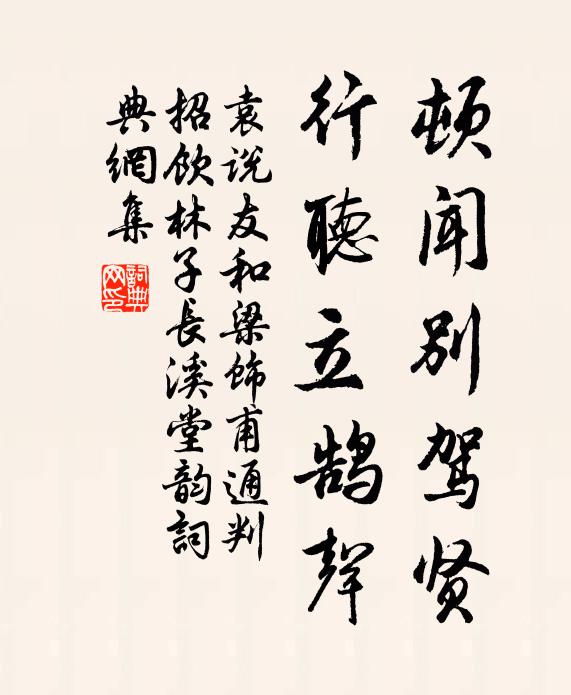 顿闻别驾贤
行聽立鹄聲
袁说友和梁饰甫通判
招饮林子長溪堂韵詞
典網集
詞典网印